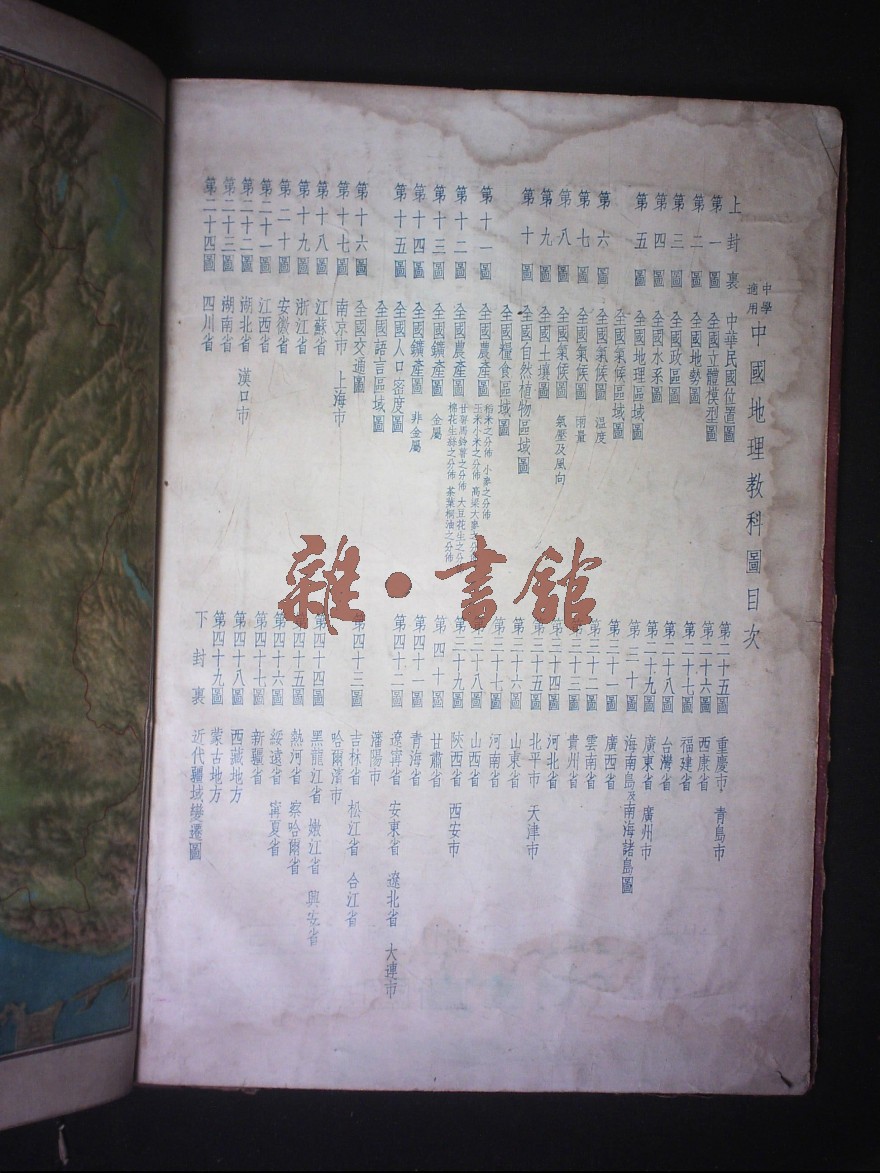 中學適用 中國地理教科圖目次
上封裏 中華民國位置圖
第一圖 全國立體模型圖
第二圖 全國地勢圖
第三圖 全國政區圖
第四圖 全國水系圖
第五圖 全國地理區域圖
全國氣候區域圖
第六圖 全國氣候圖 溫度
第七圖 全國氣候圖 雨量
第八圖 全國氣候圖 氣壓及風向
第九圖 全國土壤圖
第十圖 全國自然植物區域圖
全國糧食區域圖
第十一圖 全國農產圖 稻米之分佈 小麥之分佈 玉米小米之分佈 高粱大麥之分佈
第十二圖 全國農產圖 甘薯馬鈴薯之分佈 大豆花生之分 棉花生絲之分佈 茶葉桐油之分佈
第十三圖 全國鑛產圖 金屬
第十四圖 全國鑛產圖 非金屬
第十五圖 全國人口密度圖
全國語言區域圖
第十六圖 全國交通圖
第十七圖 南京市 上海市
第十八圖 江蘇省
第十九圖 浙江省
第二十圖 安徽省
第二十一圖 江西省
第二十二圖 湖北省 漢口市
第二十三圖 湖南省
第二十四圖 四川省
第二十五圖 重慶市 青島市
第二十六圖 西康省
第二十七圖 福建省
第二十八圖 台灣省
第二十九圖 廣東省 廣州市
第三十圖 海南島及南海諸島圖
第三十一圖 廣西省
第三十二圖 雲南省
第三十三圖 貴州省
第三十四圖 河北省
第三十五圖 北平市 天津市
第三十六圖 山東省
第三十七圖 河南省
第三十八圖 山西省
第三十九圖 陝西省 西安市
第四十圖 甘肅省
第四十一圖 青海省
第四十二圖 遼寧省 安東省 遼北省 大連市
瀋陽市
第四十三圖 吉林省 松江省 合江省
哈爾濱市
第四十四圖 黑龍江省 嫩江省 興安省
第四十五圖 熱河省 察哈爾省
第四十六圖 綏遠省 寧夏省
第四十七圖 新疆省
第四十八圖 西藏地方
第四十九圖 蒙古地方
下封裏 近代疆域變遷圖
雜·書館